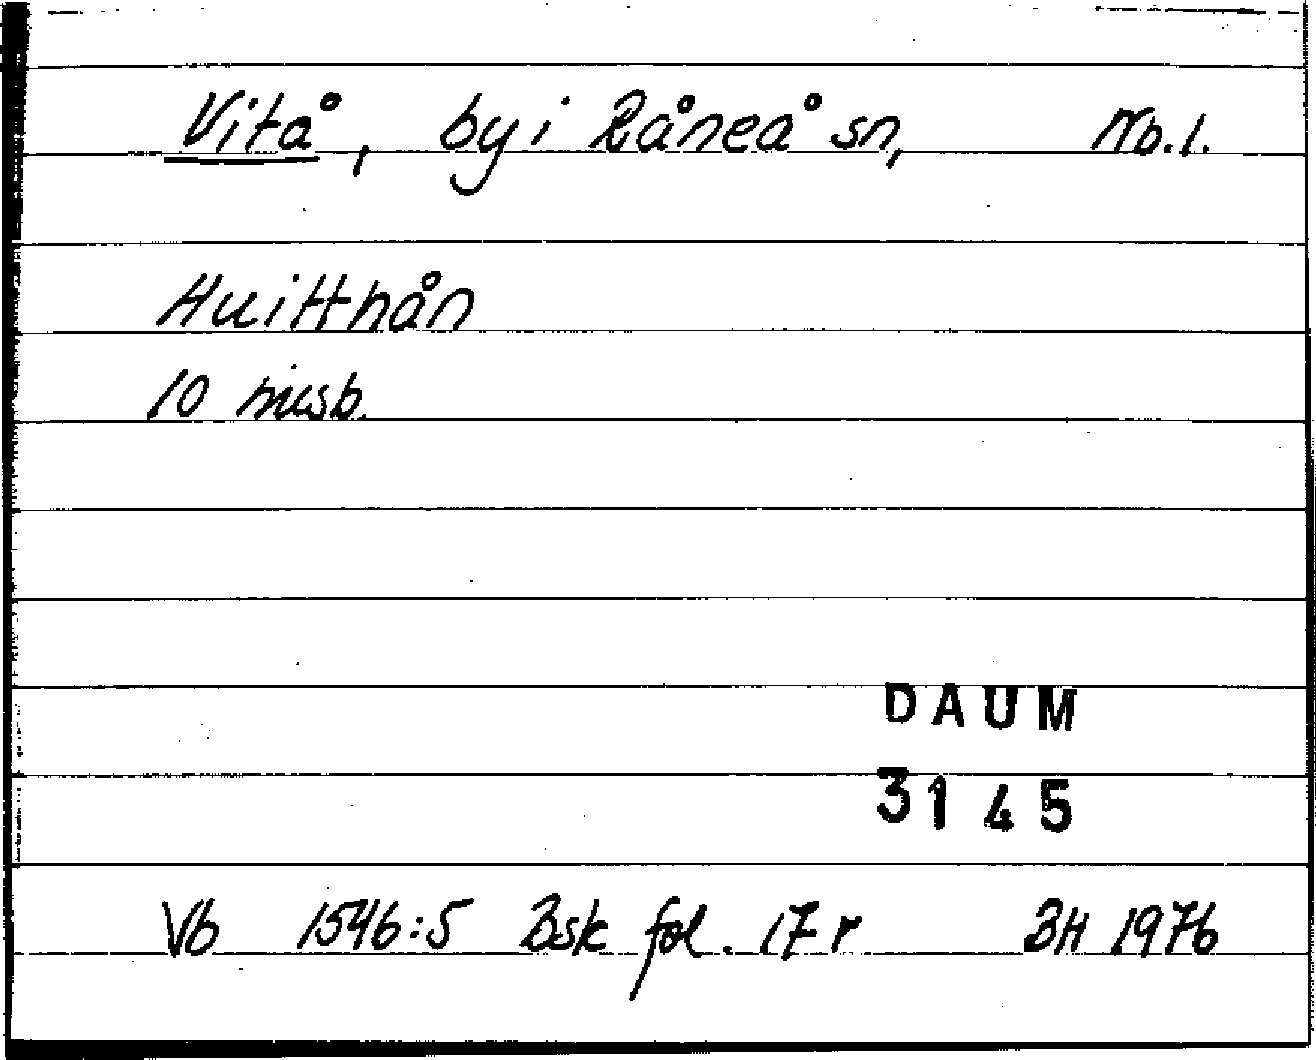 Vitå, by i Råneå sn, Nb.l.
Huitthån
10 husb.
DAUM
3145
Vb 1546:5 Bsk fol. 17 r BH 1976